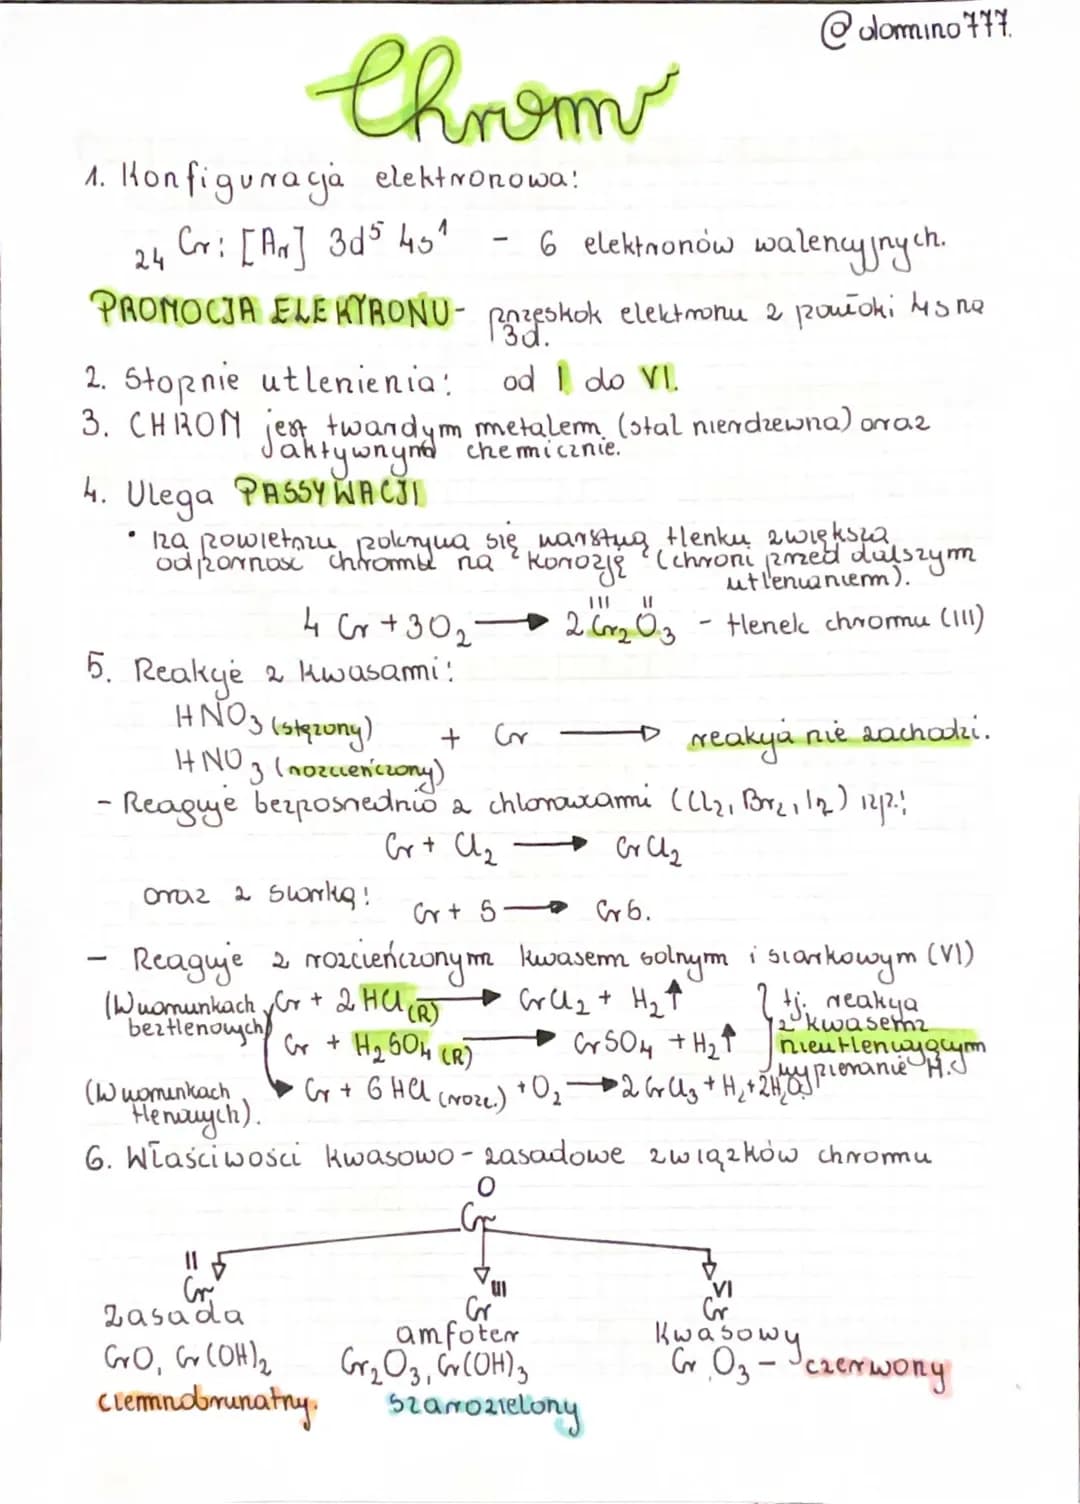 @domino777.
Chrom
1. Konfiguracja elektronowa:
₂₄Cr: [Ar] 3d⁵ 4s¹ - 6 elektronów walencyjnych.
PROMOCJA ELEKTRONU- przeskok elektronu z powłoki 4s na
3d.
2. Stopnie utlenienia: od I do VI.
3. CHROM jest twardym metalem (stal nierdzewna) oraz
aktywnym chemicznie.
4. Ulega PASSYWACJI
• na powietrzu pokrywa się warstwą tlenku zwiększa
odporność chromu na korozję (chroni przed dalszym
utlenianiem).
4 Cr + 3O₂ → 2 Cr₂O₃ - tlenek chromu (III)
III II
5. Reakcje z kwasami:
HNO₃ (stężony)
+ Cr → reakcja nie zachodzi.
HNO₃ (rozcieńczony)
- Reaguje bezpośrednio z chlorowcami (Cl₂, Br₂, I₂) np.:
Cr + Cl₂ → CrCl₂
oraz z siarką:
Cr + S → CrS.
- Reaguje z rozcieńczonym kwasem solnym i siarkowym (VI)
(W warunkach Cr + 2 HCl (R) → CrCl₂ + H₂↑ } tj. reakcja
beztlenowych) z kwasem
Cr + H₂SO₄ (R) → CrSO₄ + H₂↑ nieutleniającym
wypieranie H.
(W warunkach Cr + 6 HCl (rozc.) + O₂ → 2 CrCl₃ + H₂ + 2H₂O
tlenowych).
6. Właściwości kwasowo-zasadowe związków chromu
0
Cr
II III VI
Cr Cr Cr
zasada amfoter kwasowy
CrO, Cr(OH)₂ Cr₂O₃, Cr(OH)₃ CrO₃ - czerwony
ciemnobrunatny. szarozielony